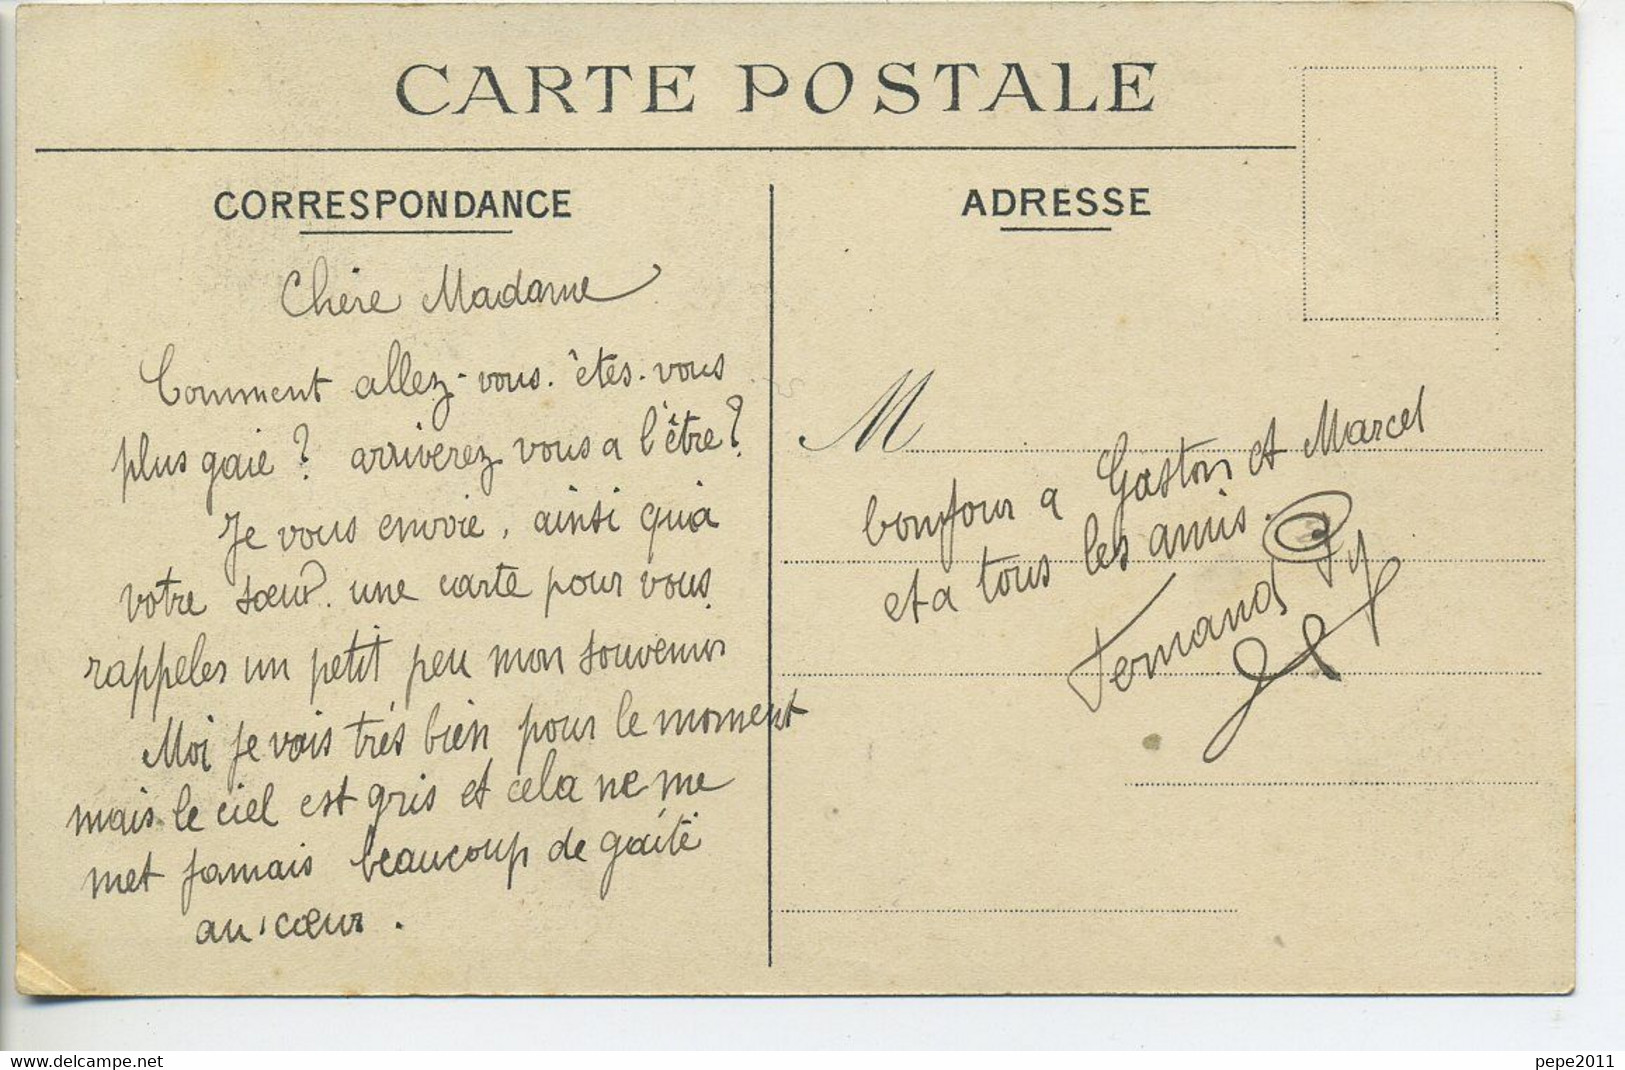 CARTE POSTALE
CORRESPONDANCE
Chère Madame
Comment allez-vous. êtes-vous
plus gaie ? arriverez vous a l'être ?
Je vous envoie, ainsi qu'a
votre sœur. une carte pour vous
rappeler un petit peu mon souvenir
Moi je vais très bien pour le moment
mais le ciel est gris et cela ne me
met jamais beaucoup de gaité
au cœur.
ADRESSE
M
bonjour a Gaston et Marcel
et a tous les amis.
Fernand
www.delcampe.net
pepe2011